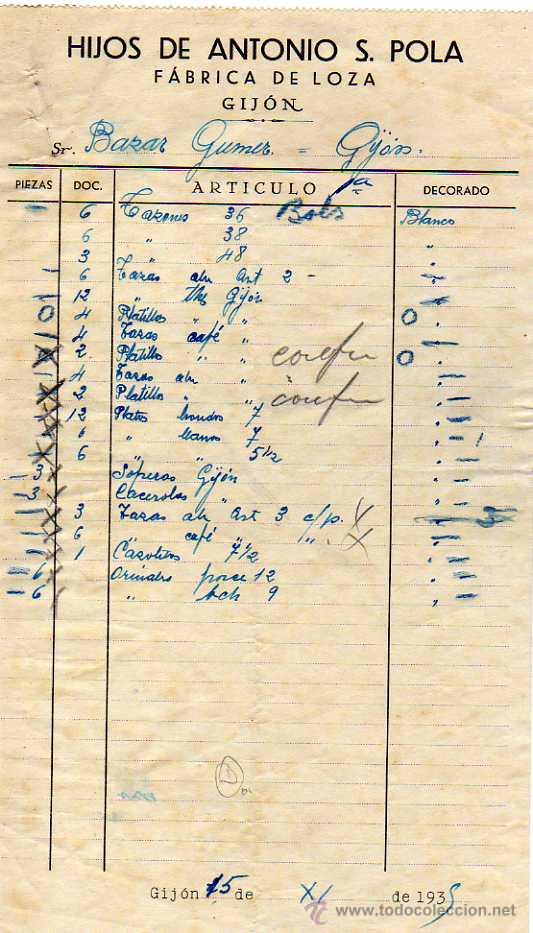 HIJOS DE ANTONIO S. POLA
FÁBRICA DE LOZA
GIJÓN
Sr. Bazar Gumer = Gijón.
PIEZAS DOC. ARTICULO 1ª DECORADO
6 Tazones 36 Bols Blanco
6 " 38 "
3 " 48 "
6 Tazas Art 2 - "
12 " Gijón "
4 Platillos " " O
4 Tazas café " "
2 Platillo " " O
4 Tazas "
2 Platillo " "
12 Platos hondos 7 "
6 " llanos 7 "
6 " " 5 1/2 "
3 Soperas Gijón "
3 Cacerolas " "
3 Tazas Art 3 c/p. X "
6 " café " " X "
1 7 1/2 "
6 Orinales 12 "
6 " bch 9 "
Gijón 15 de XI de 1935
www.todocoleccion.net